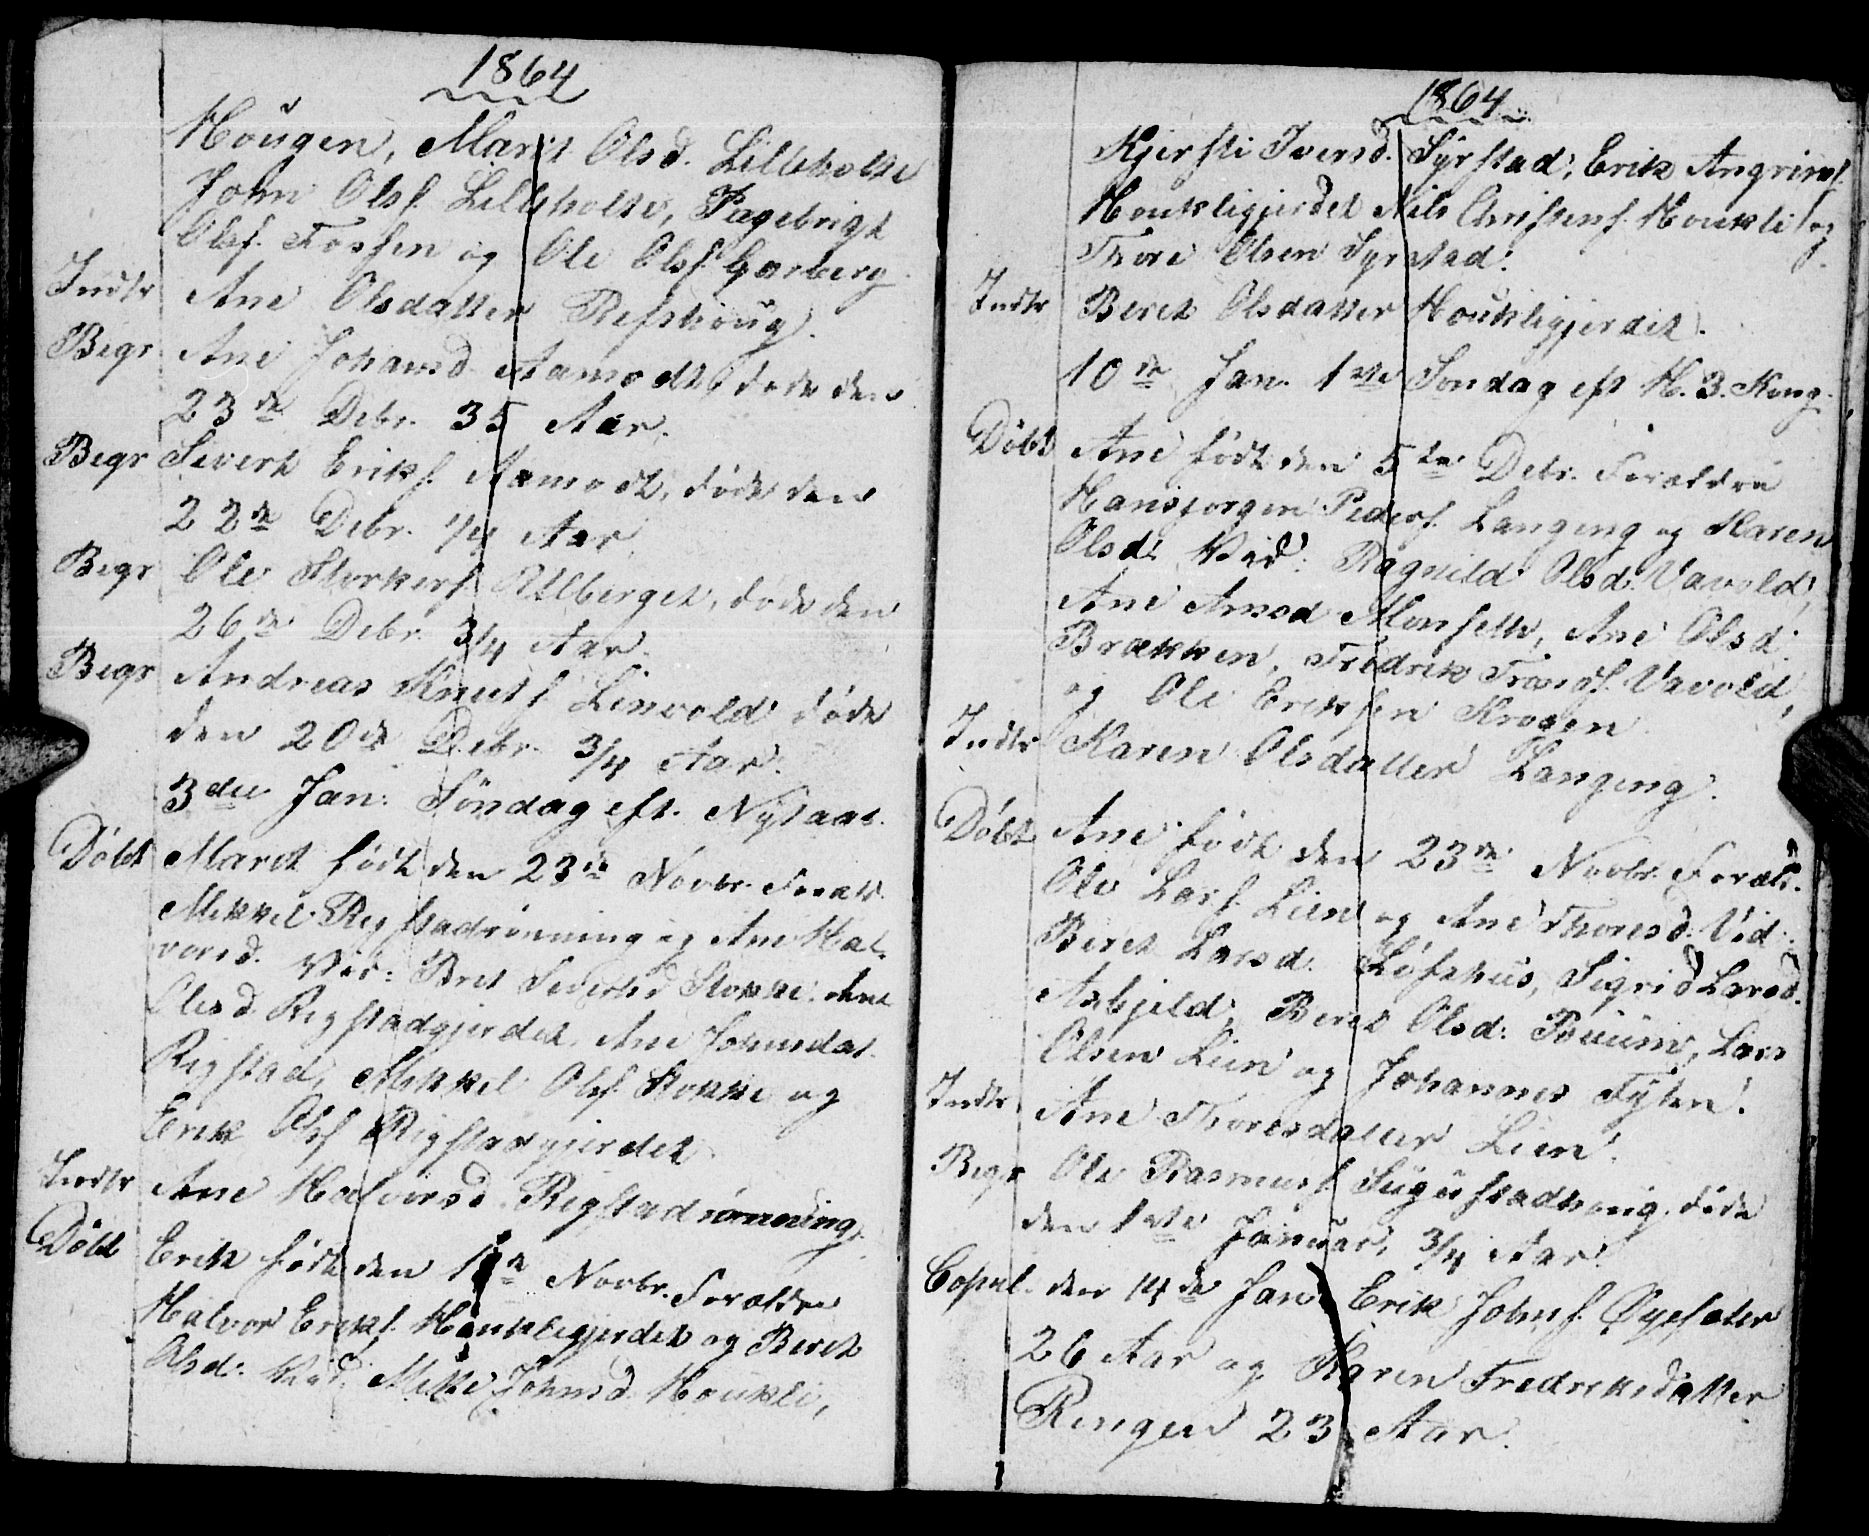 1864
Hougen, Marit Olsd. Lilleholte
John Olsf. Lilleholte, Pagebrigt
Olsf. Fossen og Ole Olsf. Garberg.
Indtr Ane Olsdatter Refshoug.
Begr Ane Johansd. Aamodt, døde den
23de Debr. 35 Aar.
Begr Sivert Eriksf. Aamodt, døde den
22de Debr. 1/4 Aar.
Begr Ole Storkersf. Ulberget, døde den
26de Debr. 3/4 Aar.
Begr Andreas Knutsf. Linvold døde
den 20de Debr. 3/4 Aar.
3die Jan. Søndag eft. Nytaar.
Døbt Maret født den 23de Novbr. Foræld.
Mikkel Rigstadrønning og Ane Hal-
vorsd. Vid: Bret Sivertsd Stokke, Ane
Olesd Rigstadgjerdet, Ane Johnsdat.
Rigstad, Mikkel Olsf. Stokke og
Erik Olsf Rigstadgjerdet.
Indtr Ane Halvorsd. Rigstadrønning.
Døbt Erik født den Novbr. Forældre
Halvor Eriksf. Houkligjerdet og Beret
Olsd. Vid. Mette Johnsd. Houkli,
1864
Kjersti Iversd. Syrstad, Erik Angrimsf.
Houkligjerdet Nils Christensf. Houkli og
Thore Olsen Syrstad.
Indtr Beret Olsdatter Houkligjerdet.
10de Jan. 1ste Søndag eft H. 3. Kong.
Døbt Ane født den 5te Debr. Forældre
Hansjørgen Pedersf. Langeng og Karen
Olsd. Vid: Ragnild Olsd. Vavold,
Ane Arnsd Monsetle, Ane Olsd.
Brækken, Fredrik Trondsf. Vavold,
og Ole Eriksen Krogen.
Indtr Karen Olsdatter Langeng.
Døbt Ane født den 23de Novbr. Foræld.
Ole Larsf. Lien og Ane Thoresd. Vid:
Beret Larsd. Løfshus, Sigrid Larsd.
Asbjeld, Beret Olsd: Lars
Olsen Lien og Johannes
Indtr Ane Thoresdatter Lien.
Begr Ole Rasmusf. døde
den 1ste Januar, 3/4 Aar.
Copul. den 14de Jan. Erik Johnsf. Øyesater
26 Aar og Karen Fredriksdatter
Ringen 23 Aar.